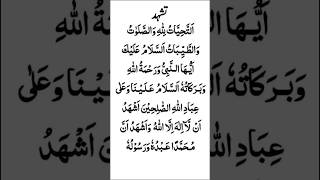 تشہد
اَلتَّحِيَّاتُ لِلّٰهِ وَالصَّلَوٰتُ
وَالطَّيِّبَاتُ اَلسَّلَامُ عَلَيْكَ
اَيُّهَا النَّبِيُّ وَرَحْمَةُ اللّٰهِ
وَبَرَكَاتُهٗ اَلسَّلَامُ عَلَيْنَا وَعَلٰى
عِبَادِ اللّٰهِ الصّٰلِحِيْنَ اَشْهَدُ
اَنْ لَّآ اِلٰهَ اِلَّا اللّٰهُ وَاَشْهَدُ اَنَّ
مُحَمَّدًا عَبْدُهٗ وَرَسُوْلُهٗ